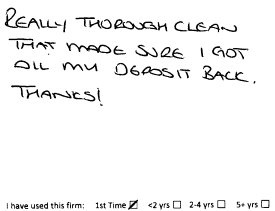 REALLY THOROUGH CLEAN
THAT MADE SURE I GOT
ALL MY DEPOSIT BACK.
THANKS!
I have used this firm: 1st Time ☑ <2 yrs ☐ 2-4 yrs ☐ 5+ yrs ☐